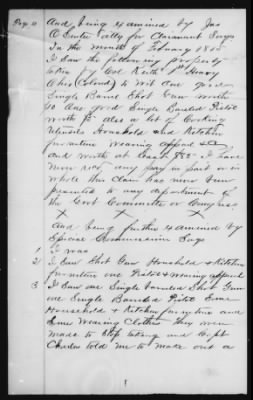 Page 11
And being examined by Jas
O Senter Atty for Claimant Says
In the month of February 186
I Saw the following property
taken by Col Keith 1st Heavy
Ohio (Colored) to Wit one good
Single Barrel Shot Gun worth
$ One good Single Barreled Pistol
worth $ Also a lot of Cooking
Utensils Household and Kitchen
furniture wearing apparel &c
And worth at least $ I have
never rec'd any pay in part or in
whole this Claim has never been
presented to any department of
the Govt Committee or Congress
X X X
And being further examined by
Special Commissioner Says
1 I was
2 I Saw Shot Gun Household & Kitchen
furniture one Pistol & wearing apparel
3 I Saw one Single barreled Shot Gun
one Single Barreled Pistol Some
Household & Kitchen furniture and
Some Wearing Clothes they were
made to Stop taking and Capt
told me to make out a